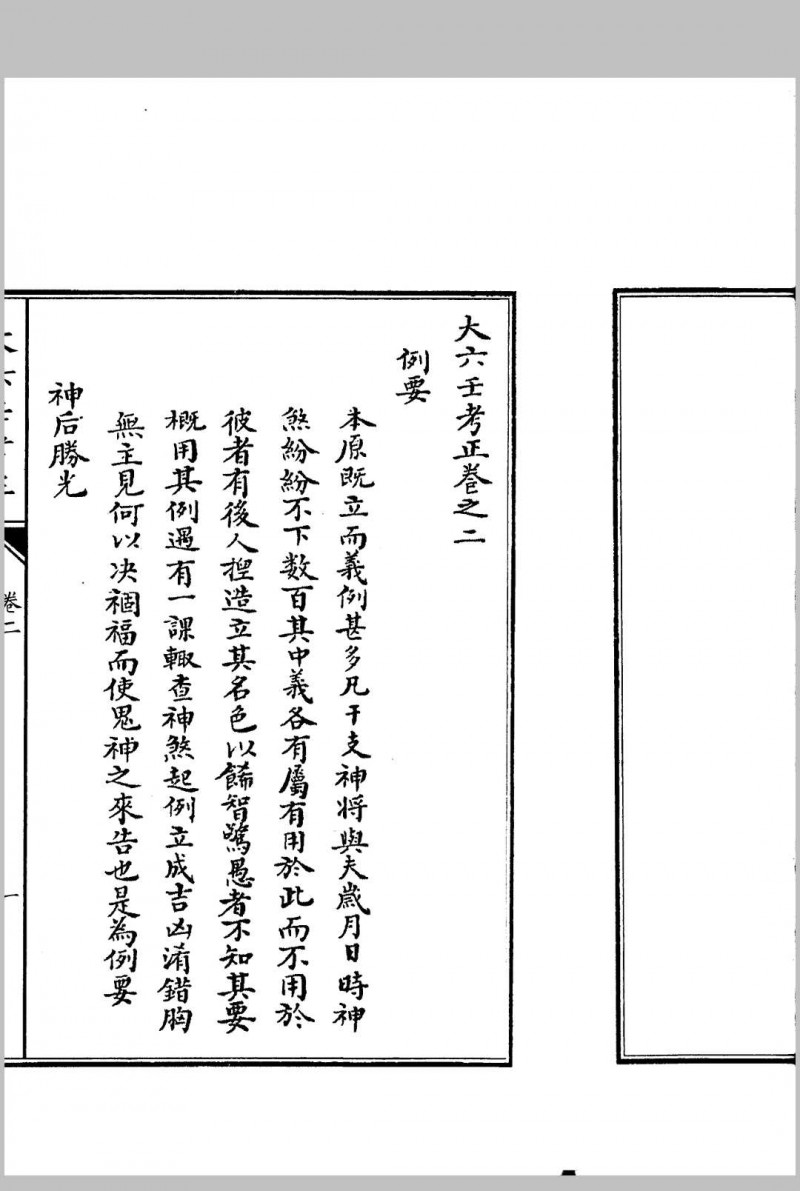 大六壬考正卷之二
例要
本原既立而義例甚多凡干支神将與夫歲月日時神
煞紛紛不下数百其中義各有屬有用於此而不用於
彼者有後人捏造立其名色以餙智驚愚者不知其要
概用其例遇有一課輙查神煞起例立成吉凶淆錯胸
無主見何以决禍福而使鬼神之來告也是為例要
神后勝光
卷二
一